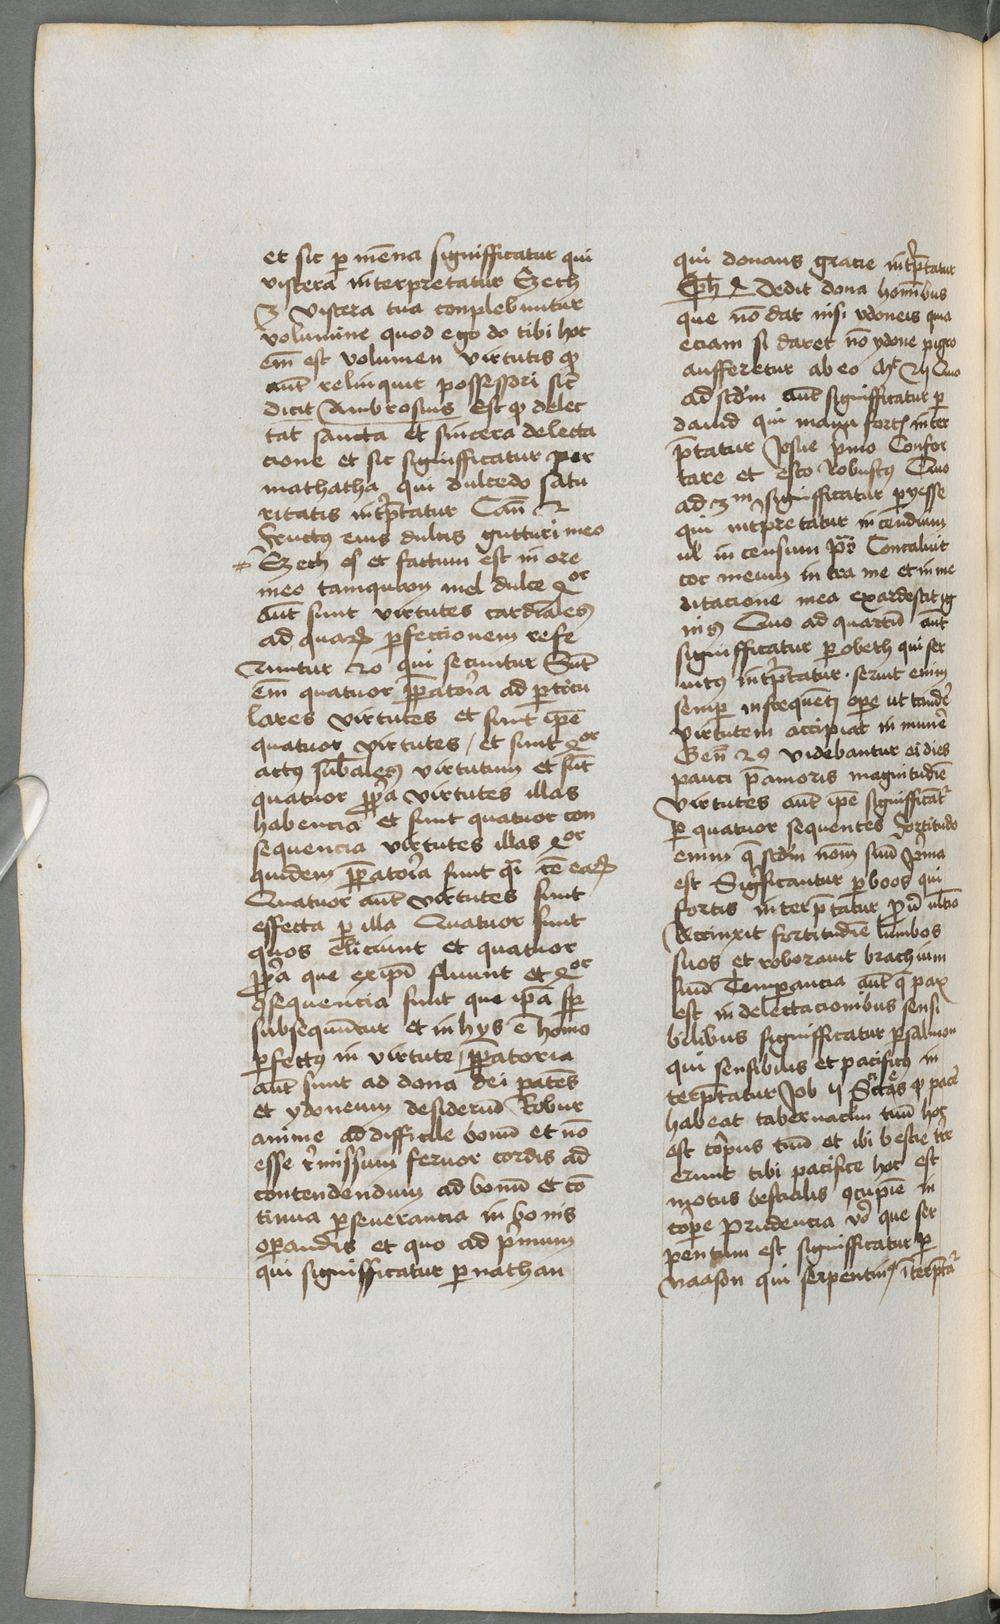 et sic p̱ mēna signifficatur qui
viscera interpretatur Ezech
3 viscera tua conplebuntur
volumine quod ego do tibi hoc
em̄ est volumen virtutis ꝙ
aut̄ relinquit possessori sic̄
dicit Ambrosius Est ꝙ delec
tat sancta et sincera delecta
cione et sic signifficatur per
mathatha qui dulcedo satu
ritatis int̄p̄tatur Can̄ 2
fructꝯ eius dulcis gutturi meo
Ezech et factum est in ore
meo tamquam mel dulce 4or
aut̄ sunt virtutes cardiales
ad quaꝝ ꝑfectionem refe
runtur 20 qui secuntur Sunt̄
em̄ quatuor p̄ꝑatoria ad ꝑticu
lares virtutes et sunt ip̄e
quatuor virtutes / et sunt 4or
actꝯ sub̄ales virtutum et sūt
quatuor ꝓp̄a virtutes illas
habencia et sunt quatuor con
sequencia virtutes illas 4or
quidem p̄ꝑatoria sunt q̄i cē eaꝝ
Quatuor aut̄ virtutes sunt
effecta ꝑ illa Quatuor sunt
quos eliciunt et quatuor
ꝓp̄a que ex ip̄i fluunt et 4or
ꝯsequencia sunt que ip̄a sꝑ
subsequūtur et in hys ē homo
ꝑfectꝯ in virtute / p̄ꝑatoria
aut̄ sunt ad dona dei patēs
et ydoneum desideriū Robur
anime ad difficile bonū et nō
esse r̄missum feruor cordis ad
contendendum ad bonū et cō
tinua ꝑseuerancia in bonis
oꝑandis et quo ad p̄mum
qui signifficatur ꝑ nathan
qui donans gracie int̄p̄tatur
Eph̄ 4 dedit dona hom̄ibus
que nō dat nisi ydoneis qua
eciam si daret nō ydone pigro
aufferetur ab eo Mt 25 Quo
ad scd̄m aut̄ signifficatur ꝑ
dauid qui manu fortꝭ inter
p̄tatur Josue p̄mo Confor
tare et esto Robustꝯ Quo
ad 3m signifficatur ꝑ yesse
qui int̄pretatur incendium
ul incensum ps̄ Concaluit
cor meum intra me et in me
ditacione mea exardescit ig
nis Quo ad quartū aut̄
signifficatur ꝑ obeth qui ser
uitꝯ int̄p̄tatur seruit enim
semꝑ infrequenti oꝑe ut tandē
virtutem accipiat in munē
Gen̄ 29 videbantur ei dies
pauci p̄ amoris magnitudiē
virtutes aut̄ ip̄e signifficat̄
ꝑ quatuor sequentes fortitudo
enim q̄ scd̄m nom̄ suū p̄ma
est Signifficantur ꝑ boos qui
fortis interp̄tatur ꝓū ultīo
Accinxit fortitudīe lumbos
suos et roborauit brachium
suū Temꝑancia aut̄ q̄ pax
est in delectacionibus sensi
bilibus signifficatur ꝑ salmon
qui sensibilis et pacificꝯ in
terp̄tatur Job 5 Scias ꝙ pacē
habeat tabernaclm̄ tuū hoc
est corpus tuū et ibi bestie tr̄e
erunt tibi pacifice hoc est
motus bestialis ꝯcupīe in
corꝑe Prudencia vo que ser
pentum est signifficatur ꝑ
naason qui serpentinꝯ int̄erp̄ta